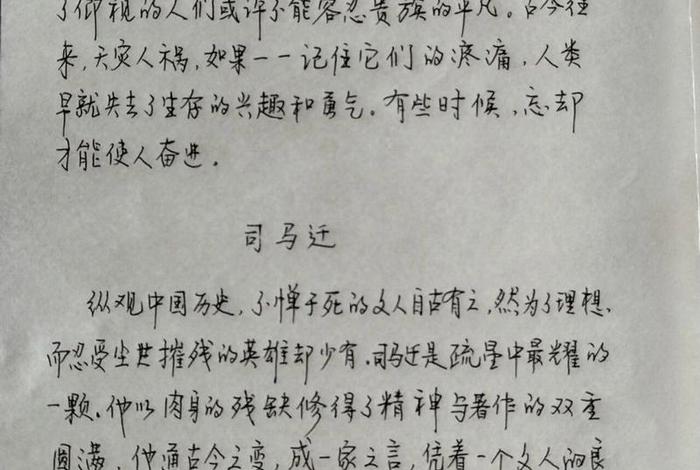 了仰视的人们或许不能容忍贵族的平凡。古今往
来,天灾人祸,如果一一记住它们的疼痛,人类
早就失去了生存的兴趣和勇气。有些时候,忘却
才能使人奋进。
司马迁
纵观中国历史,不惮于死的文人自古有之,然为了理想,
而忍受尘世摧残的英雄却少有。司马迁是疏星中最耀的
一颗。他以肉身的残缺修得了精神与著作的双重
圆满,他通古今之变,成一家之言,凭着一个文人的良